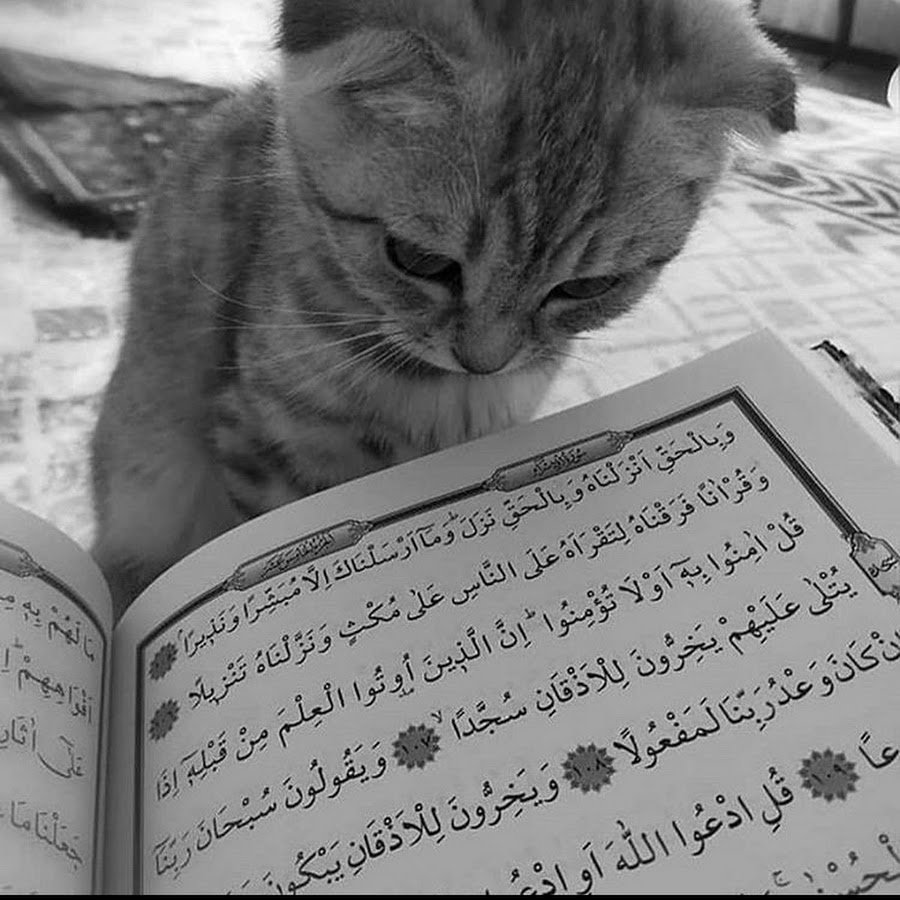 سُورَةُ الْاِسْرَاءِ
وَبِالْحَقِّ اَنْزَلْنَاهُ وَبِالْحَقِّ نَزَلَۜ وَمَٓا اَرْسَلْنَاكَ اِلَّا مُبَشِّرًا وَنَذِيرًا
وَقُرْاٰنًا فَرَقْنَاهُ لِتَقْرَاَهُ عَلَى النَّاسِ عَلٰى مُكْثٍ وَنَزَّلْنَاهُ تَنْزِيلًا
قُلْ اٰمِنُوا بِهِٓ اَوْ لَا تُؤْمِنُواۜ اِنَّ الَّذِينَ اُو۫تُوا الْعِلْمَ مِنْ قَبْلِهِٓ اِذَا
يُتْلٰى عَلَيْهِمْ يَخِرُّونَ لِلْاَذْقَانِ سُجَّدًا ١٠٧ وَيَقُولُونَ سُبْحَانَ رَبِّنَٓا
اِنْ كَانَ وَعْدُ رَبِّنَا لَمَفْعُولًا ١٠٨ وَيَخِرُّونَ لِلْاَذْقَانِ يَبْكُونَ
عًا ١٠٩ قُلِ ادْعُوا اللّٰهَ اَوِ ادْعُوا
مَالَهُمْ بِهِ
اَفْوَاهِهِمْ
عَلٰٓى اٰثَارِ
جَعَلْنَا مَا